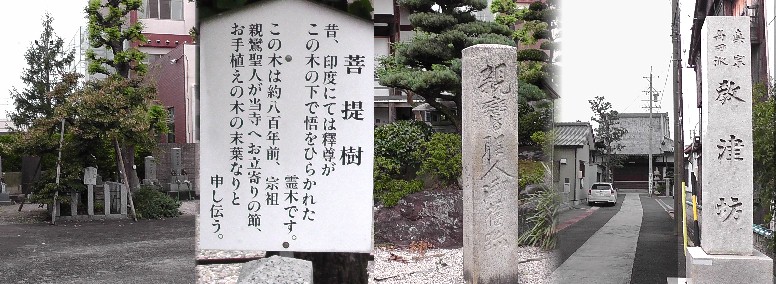 菩提樹
昔、印度にては釋尊が
この木の下で悟をひらかれた
霊木です。
この木は約八百年前、宗祖
親鸞聖人が当寺へお立寄りの節、
お手植えの木の末葉なりと
申し伝う。
親鸞聖人
真宗
高田派
教津坊